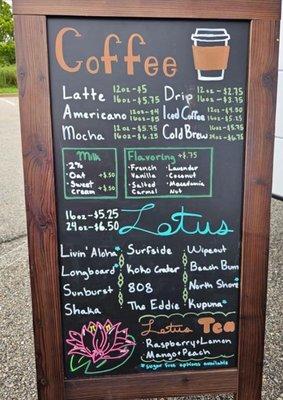 Coffee
Latte 12oz-$5
16oz-$5.75
Americano 12oz-$4
16oz-$5
Mocha 12oz-$5.75
16oz-$6.25
Drip 12oz-$2.75
16oz-$3.75
Iced Coffee
Cold Brew
24oz-$6.75
Milk
- 2%
- Oat +$.50
- Sweet cream +$.50
Flavoring +$.75
- French Vanilla
- Salted Carmel
- Lavender
- Coconut
- Macadamia Nut
16oz-$5.25
24oz-$6.50
Lotus
Livin' Aloha Surfside Wipeout
Longboard Koko Crater Beach Bum
Sunburst 808 North Shore
Shaka The Eddie Kupuna
Lotus Tea
Raspberry+Lemon
Mango+Peach
*sugar free options available